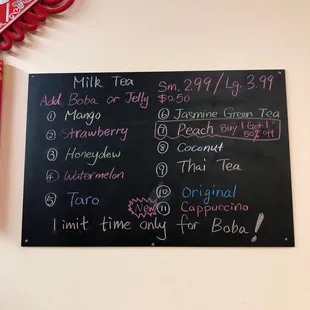 Milk Tea Sm. 2.99 / Lg. 3.99
Add Boba or Jelly $0.50
① Mango
② Strawberry
③ Honeydew
④ Watermelon
⑤ Taro
⑥ Jasmine Green Tea
⑦ Peach Buy 1 Get 1 50% off
⑧ Coconut
⑨ Thai Tea
⑩ Original
New ⑪ Cappuccino
Limit time only for Boba!